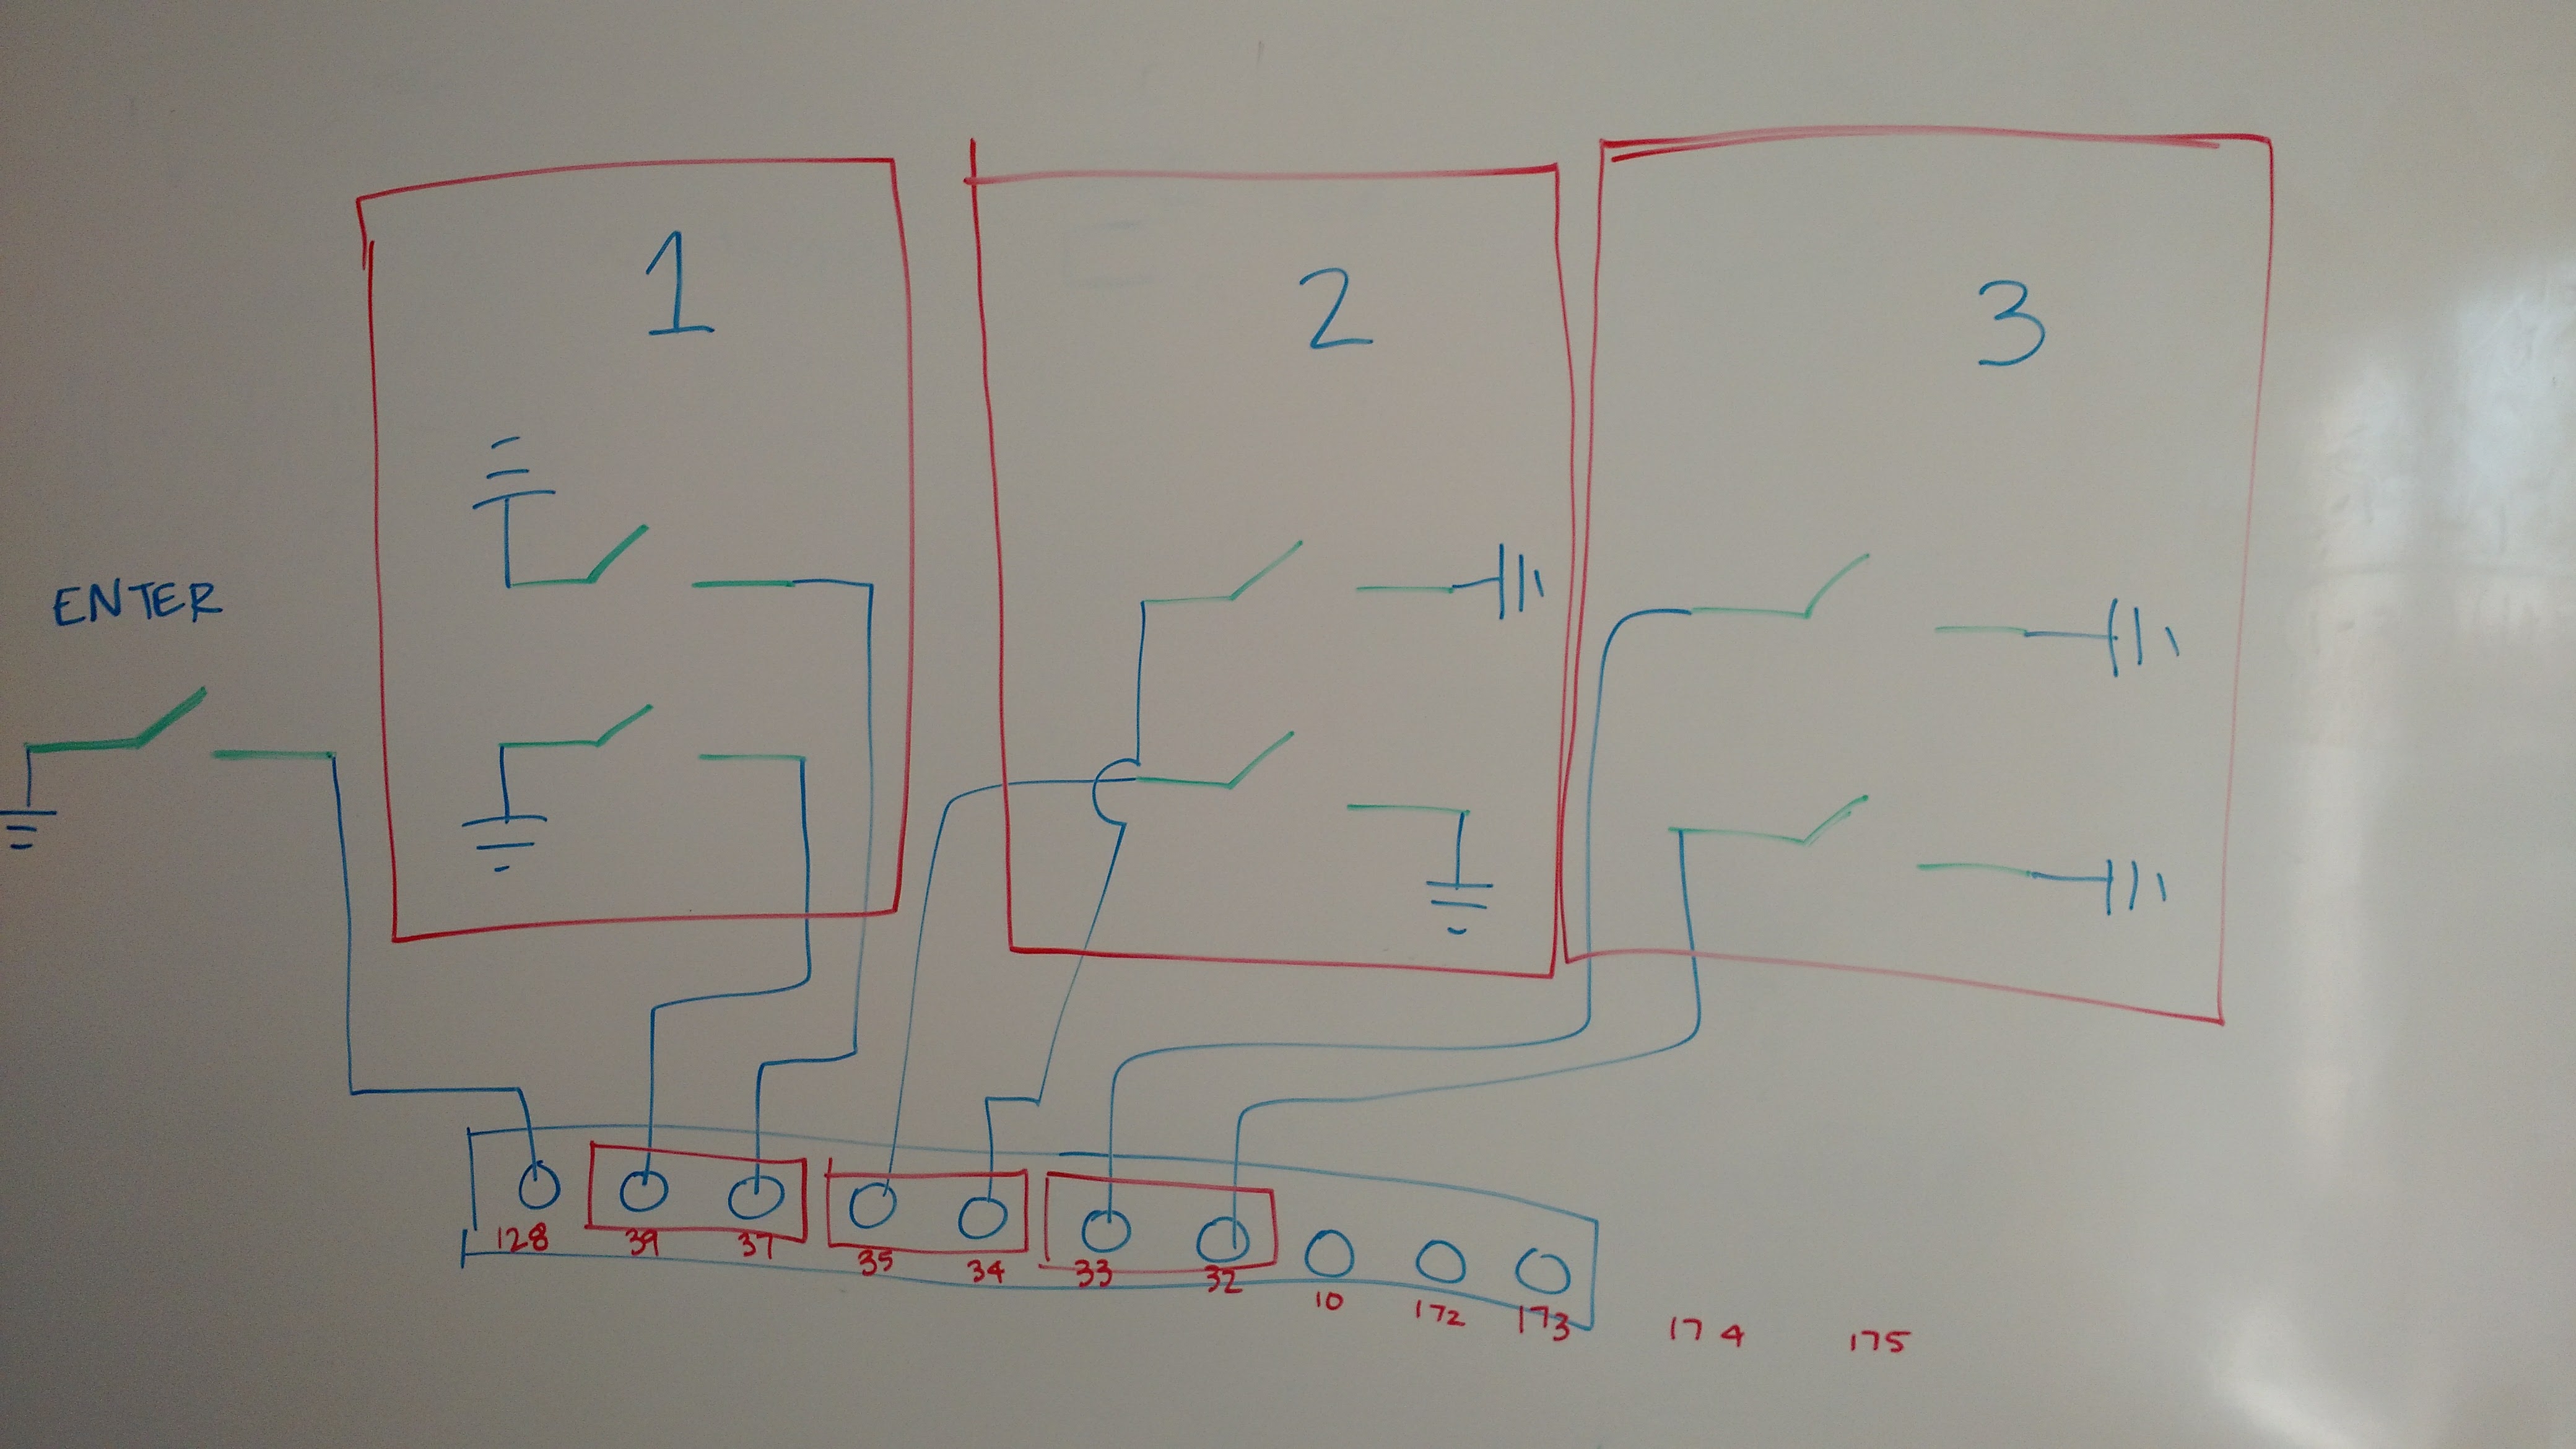 1
2
3
ENTER
128 39 37 35 34 33 32 10 172 173 174 175